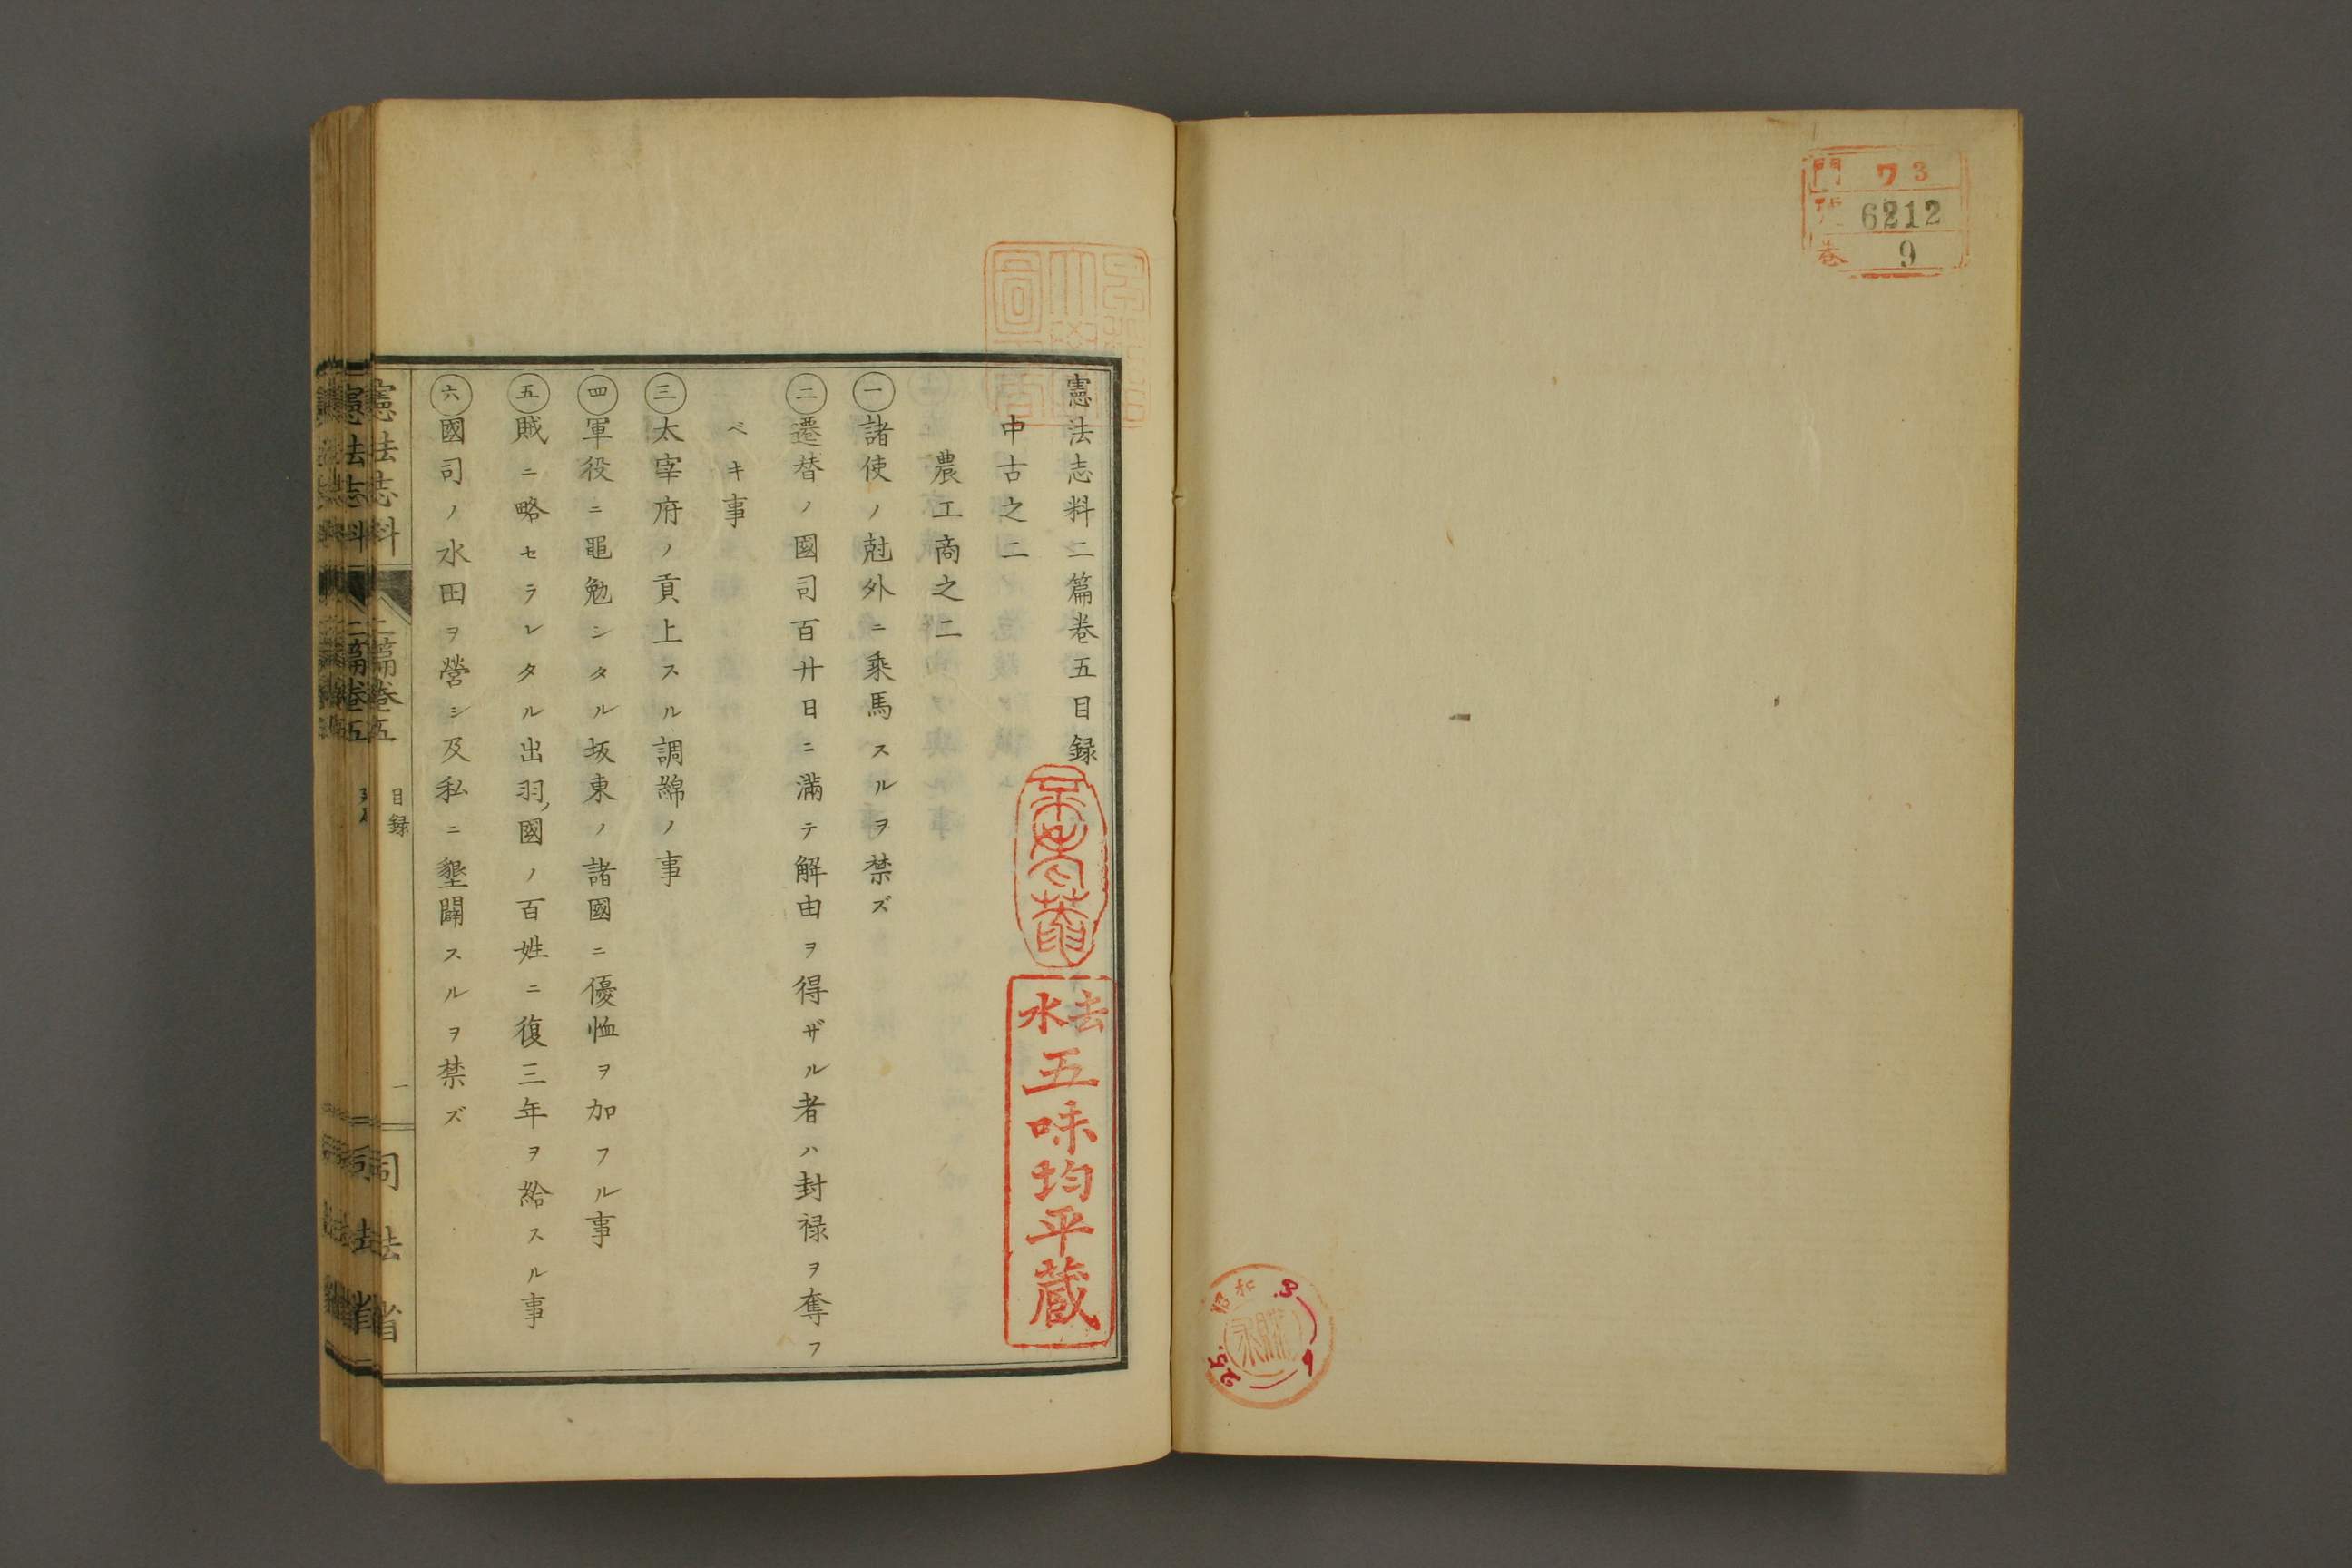 門 ワ 3
6212
巻 9
昭和 3. 6 25.
憲法志料二篇卷五目録
中古之二
農工商之二
一 諸使ノ尅外ニ乘馬スルヲ禁ズ
二 遷替ノ國司百廿日ニ滿テ解由ヲ得ザル者ハ封禄ヲ奪フ
ベキ事
三 太宰府ノ貢上スル調綿ノ事
四 軍役ニ黽勉シタル坂東ノ諸國ニ優恤ヲ加フル事
五 賊ニ略セラレタル出羽ノ國ノ百姓ニ復三年ヲ給スル事
六 國司ノ水田ヲ營シ及私ニ墾闢スルヲ禁ズ
五味均平蔵
憲法志料 二篇卷五 目録 一 司法省